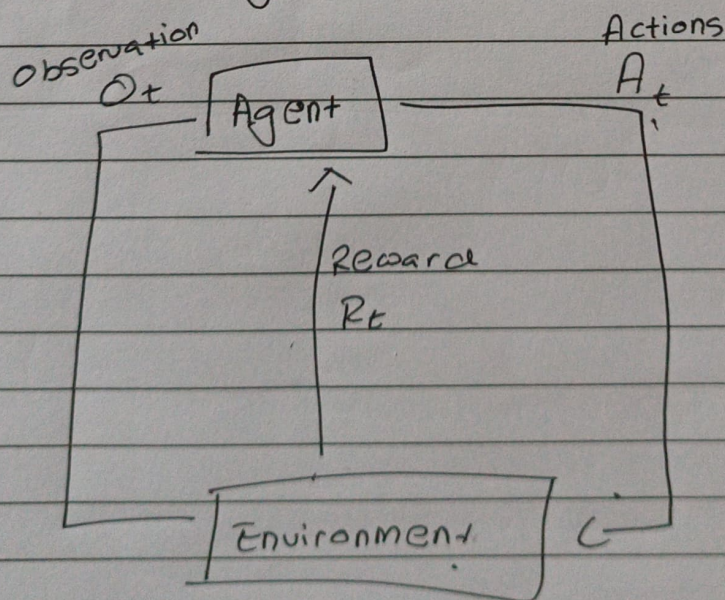 Observation
Ot
Agent
Actions
At
Reward
Rt
Environment